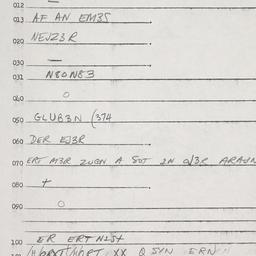 012 —
013 AF AN EM35
020 NEJZ3R
030 —
031 N80N83
040 O
050 GLUB3N (374
060 DER EJ3R
070 ERT M3R ZUGN A SOT IN
080 +
090 O
100 ER ERT NIST
XX Q SYN ERN